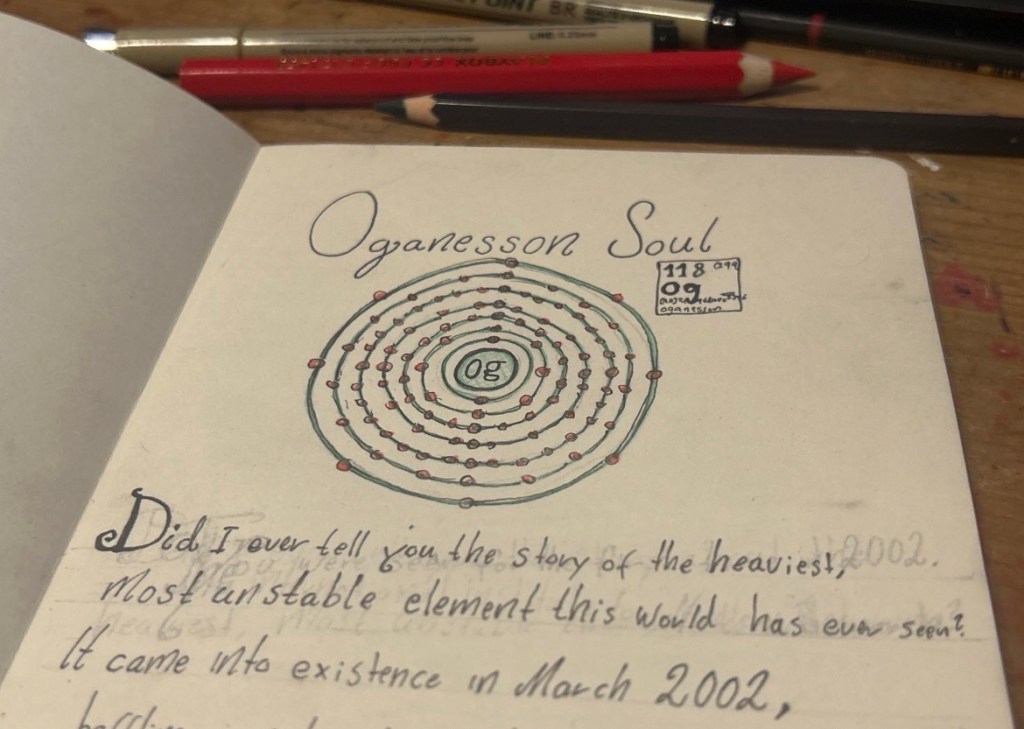 POINT BR
LINE: 0.25mm
Oganesson Soul
118
Og
oganesson
Og
Did I ever tell you the story of the heaviest,
2002.
most unstable element this world has ever seen?
It came into existence in March 2002,